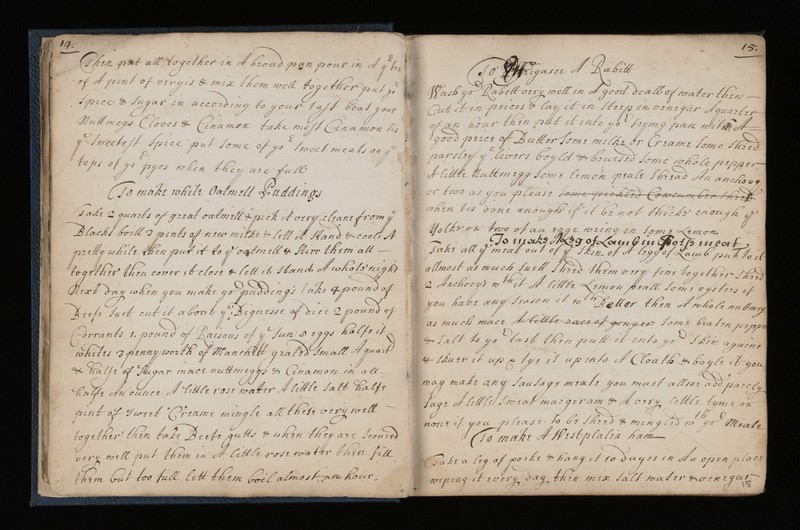 14.
Then put all together in A broad pan pour in A
of A pint of vergis & mix them well together put yo
Spice & Sugar in according to your tast beat your
Nuttmegs Cloves & Cinamon take most Cinamon
ye Sweetest Spice put some of yor sweet meats on ye
tops of yor pyes when they are full
To make white Oatmell Puddings
Take 2 quarts of great oatmell & pick it very cleane from ye
Blacks boill 3 pints of new milke & lett it stand & coole A
pretty while then put it to ye oatmell & stirr them all
together then cover it close & lett it stand A whole night
Next day when you make yor puddings take 4 pound of
Beefe suet cut it about ye Bignesse of dice 2 pound of
Currants 1. pound of Raisons of ye Sun 8 eggs halfe ye
whites 3 pennyworth of Manchett grated small A quart
& halfe of Sugar mace nuttmeggs & Cinamon in all
halfe an ounce A little rose water A little salt halfe
pint of Sweet Creame mingle all these very well
together then take Beefe gutts & when they are scoured
very well put them in A little rose water then fill
them but too full lett them boil almost an hour.
15.
To Frigasee A Rabitt
Wash yor Rabett very well in A good deall of water then
Cut it in peices & lay it in steep in vinegar A quarter
of an hour then put it into yor frying pan with A
good peice of Butter some milke or Creame some shred
parsley ye livers boyld & bruised some whole pepper
A little Nuttmegg some lemon peale shread An anchovy
or two as you please some pickled Cowcumber
when tis done enough if it be not thicke enough ye
Yolke on two of an egge wring in some Lemon
To make A Leg of Lamb in Forss meat
Take all ye meat out of ye Skin of A legg of Lamb put to it
allmost as much suett shred them very fine together shred
2 Anchovys wth it A little Lemon peall some oysters if
you have any season it wth then A whole nutmeg
as much mace A little race of genger some beaten pepper
& salt to yor tast then putt it into yor Skin againe
& skuer it up & tye it up into A Cloath & boyle it you
may make any Sausage meate you must allsoe add parcly
sage A little sweat margeram & A very little tyme on
nour if you please to be shred & mingled wth yor Meate
To make A Westphalia ham
Take A leg of porke & hang it 10 dayes in An open place
wipeing it every day then mix salt water & vinegar
15